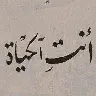 أنتِ الحياة